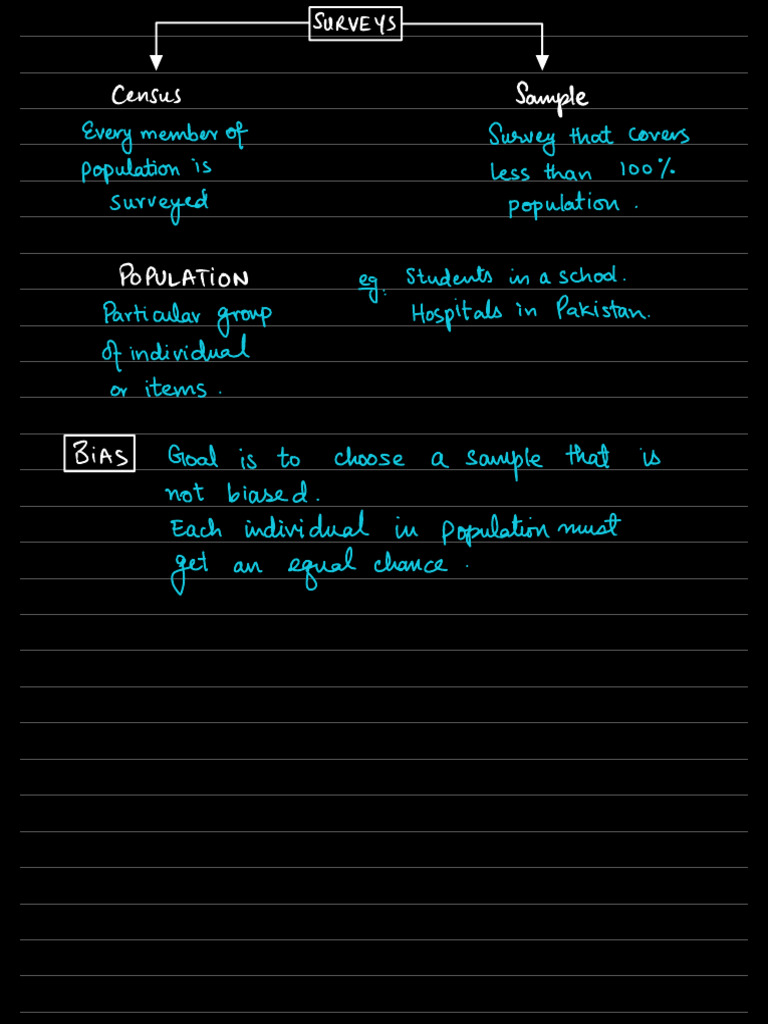 SURVEYS
Census
Every member of
population is
surveyed
Sample
Survey that covers
less than 100%
population.
POPULATION
Particular group
of individual
or items.
eg. Students in a school.
Hospitals in Pakistan.
BiAS
Goal is to choose a sample that is
not biased.
Each individual in population must
get an equal chance.